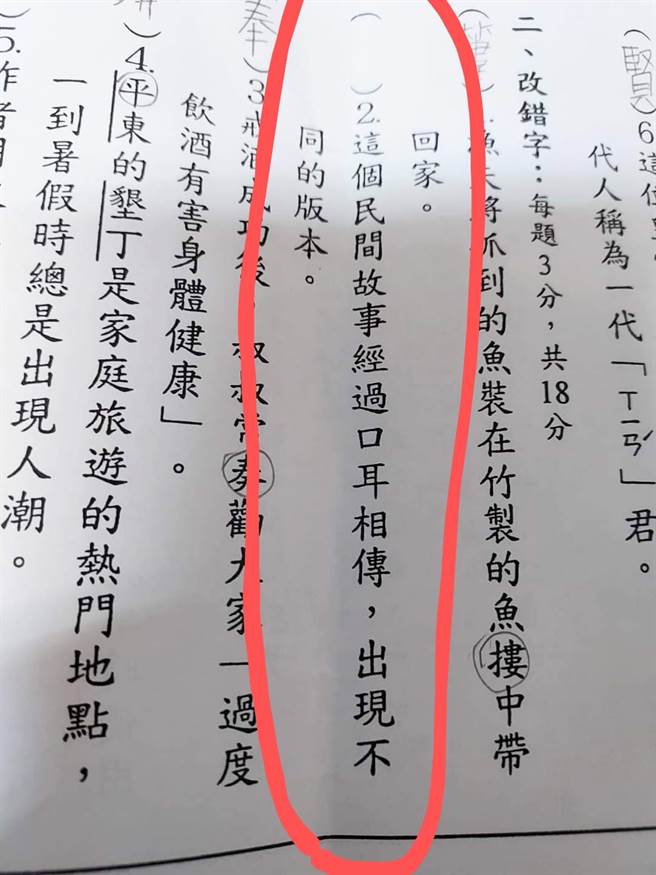 (賢)6.這位
代人稱為一代「ㄒㄧㄢˊ」君。
二、改錯字：每題3分，共18分
(簍)1.漁夫將抓到的魚裝在竹製的魚摟中帶
回家。
( )2.這個民間故事經過口耳相傳，出現不
同的版本。
(奉)3.戒酒成功後，叔叔常奏勸大家「過度
飲酒有害身體健康」。
)4.平東的墾丁是家庭旅遊的熱門地點，
一到暑假時總是出現人潮。
)5.作者